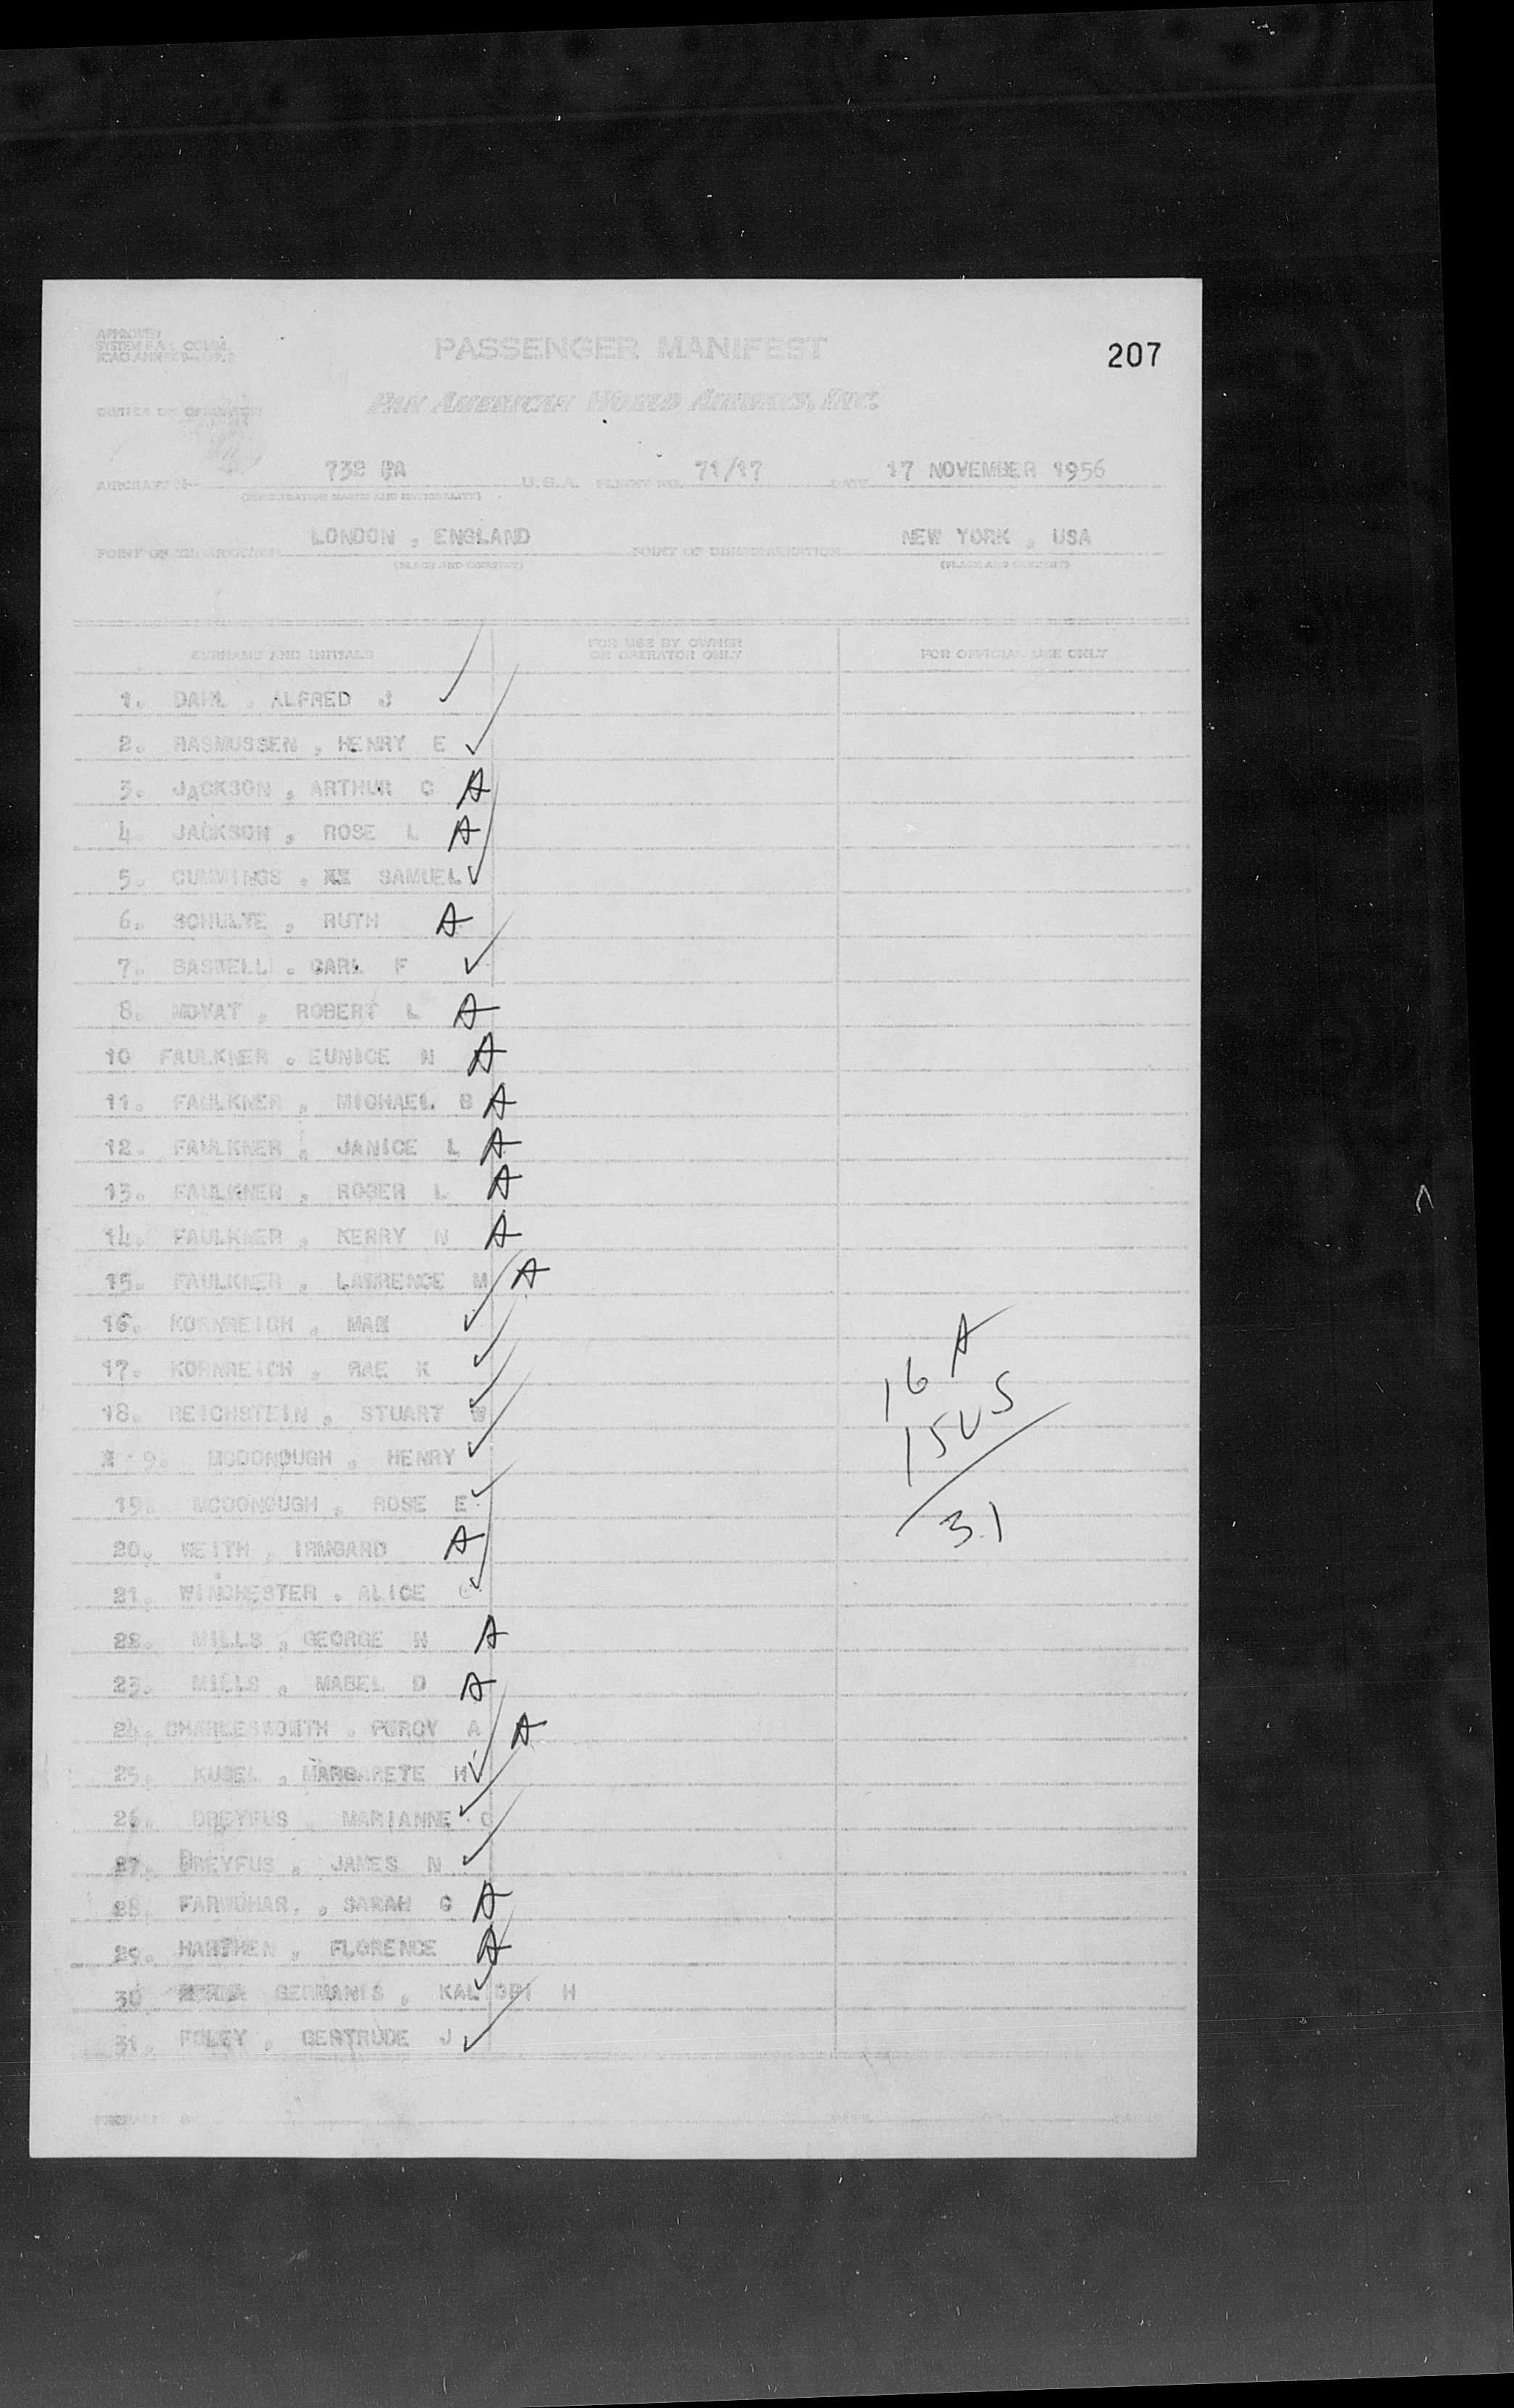 APPROVED
SYSTEM P.A.A. COMM.
ICAO ANNEX 9-APP. 2
PASSENGER MANIFEST
207
OWNER OR OPERATOR
PAN AMERICAN WORLD AIRWAYS, INC.
AIRCRAFT N- 732 PA U.S.A. FLIGHT NO. 71/17 DATE 17 NOVEMBER 1956
(REGISTRATION MARKS AND NATIONALITY)
POINT OF EMBARKATION LONDON , ENGLAND POINT OF DISEMBARKATION NEW YORK , USA
(PLACE AND COUNTRY) (PLACE AND COUNTRY)
SURNAME AND INITIALS FOR USE BY OWNER OR OPERATOR ONLY FOR OFFICIAL USE ONLY
1. DAHL , ALFRED J ✓
2. RASMUSSEN , HENRY E ✓
3. JACKSON , ARTHUR C A
4. JACKSON , ROSE L A
5. CUMMINGS , XX SAMUEL ✓
6. SCHULTE , RUTH A
7. , CARL F ✓
8. , ROBERT L A
10 FAULKNER , EUNICE N A
11. FAULKNER , MICHAEL B A
12. FAULKNER , JANICE L A
13. FAULKNER , ROGER L A
14. FAULKNER , KERRY N A
15. FAULKNER , LAWRENCE M A
16. KORNREICH , MAX ✓
17. KORNREICH , RAE K ✓
18. REICHSTEIN , STUART W ✓
9. MCDONOUGH , HENRY ✓
19. MCDONOUGH , ROSE E ✓
20. WEITH , IRMGARD A
21. WINCHESTER , ALICE C ✓
22. MILLS , GEORGE N A
23. MILLS , MABEL D A
24. CHARLESWORTH , PERCY A A
25. KUGEL , MARGARETE H ✓
26. DREYFUS , MARIANNE C ✓
27. DREYFUS , JAMES N ✓
28. FARQUHAR. , SARAH G A
29. , FLORENCE A
30 GERMANIS , H ✓
31. FOLEY , GERTRUDE J ✓
16 A
15 US
31